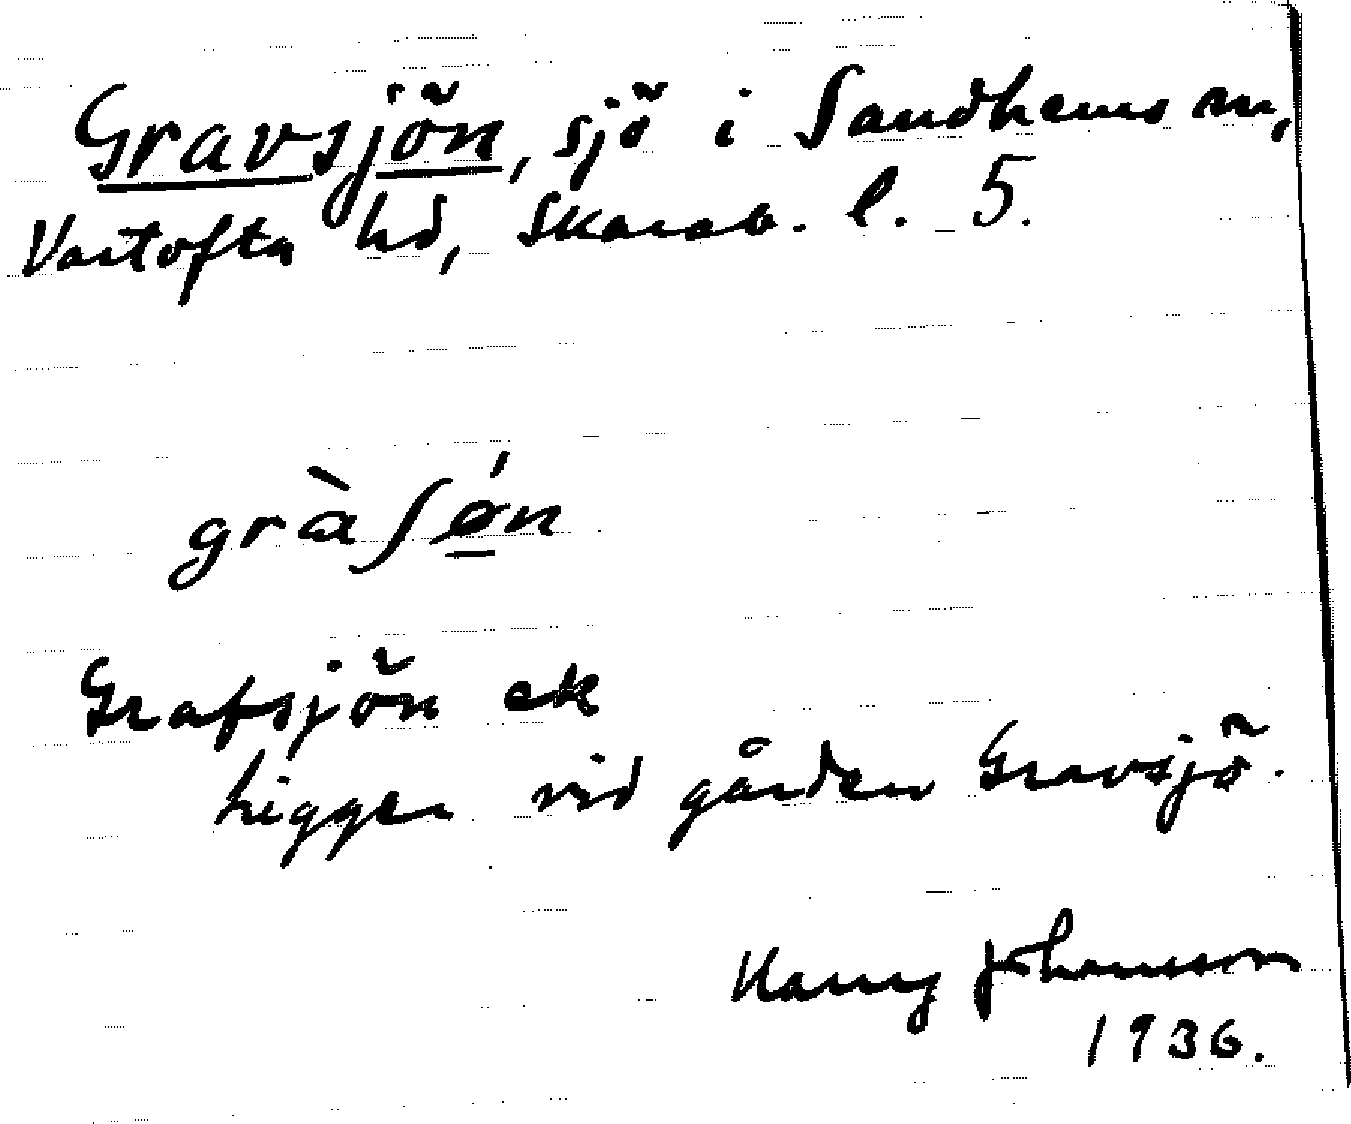 Gravsjön, sjö i Sandhems sn,
Vartofta hd, Skarab. l. 5.
gràʃǿn
Grafsjön ek
ligger vid gården Gravsjö.
Harry Johansson
1936.